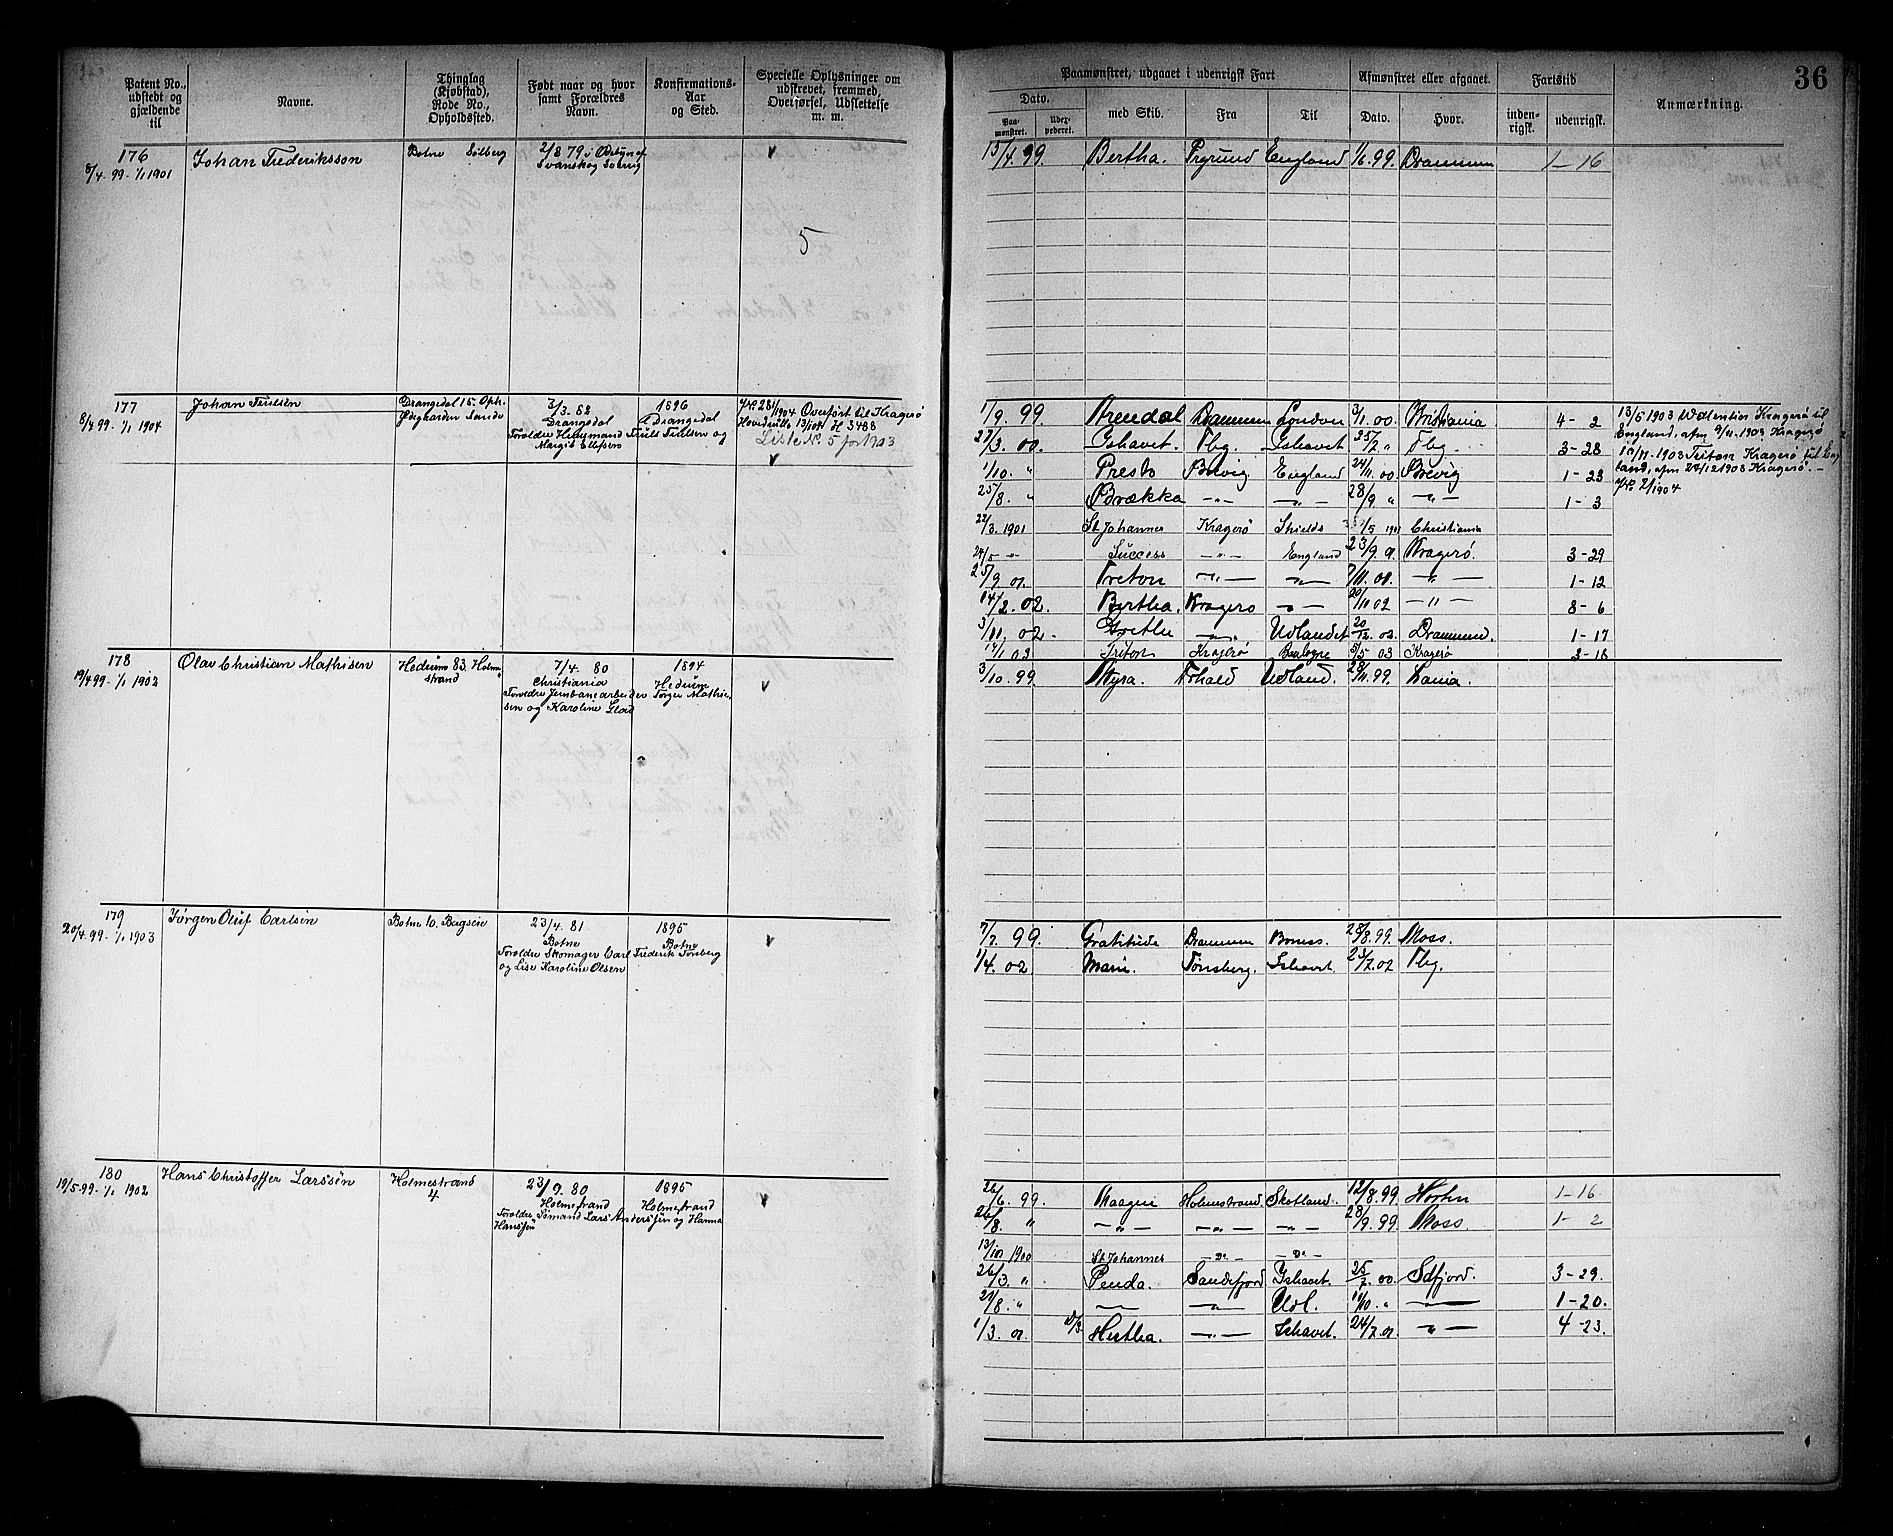 36
Patent No., udstedt og gjældende til
Navne.
Thinglag (Kjøbstad), Rode No., Opholdssted.
Født naar og hvor samt Forældres Navn.
Konfirmations-Aar og Sted.
Specielle Oplysninger om udskrevet, fremmed, Overførsel, Udslettelse m. m.
Paamønstret, udgaaet i udenrigsk Fart
Dato.
Paa-mønstret.
med Skib.
Fra
Til
Afmønstret eller afgaaet.
Dato.
Hvor.
Fartstid
inden-rigsk.
udenrigsk.
Anmærkning.
176
8/4-99-1/1 1901
Johan Frederiksson
Botne Solberg
2/8 79 i
Svanskog
5
15/4.99. Bertha. Prgrund England 1/6.99. Drammen 1-16
177
8/4 99-1/1 1904
Johan Trulsen
Drangedal 15. Oph.
Ødegaarden Sande
3/3. 82
Drangedal
Forældre
Margit Ellefsen
1896
Drangedal
Truls Trulsen og
Overført til Kragerø
Hovedrulle 13/1 04 № 3488
Liste № 5 for 1903
1/9. 99. Arendal Drammen London 3/1. 00. Kristiania 4-2
27/3. 00. Ishavet. Tbg. Ishavet 25/7 " Tbg. 3-28
1/10. " Presto England 24/11.00. Brevig 1-23
25/8. " Brækka -"- -"- 28/9. " -"- 1-3
22/3. 1901 St Johannes Kragerø Shields 1/5 1901 Christiania
24/5 -"- Success -"- England 23/9. 01. Kragerø. 3-29
25/9. 01. Treton -"- -"- 7/11. 01. -"- 1-12
14/2. 02. Bertha. Kragerø -"- 20/11 02 -"- 8-6
3/11. 02. Grethe -"- Udlandet 20/12. 02. Drammen. 1-17
17/1 03 Triton Kragerø Boulogne 5/5 03 Kragerø 3-18
13/5 1903 Valentin Kragerø til
England, afm 9/11.1903 Kragerø
10/11.1903 Triton Kragerø til Eng
land, afm 24/12 1903 Kragerø. -
178
19/4 99-1/1 1902
Olav Christian Mathisen
Hedrum 83. Holme-
strand
7/4. 80
Christiania
Forældre Jernbanearbeider
sen og Karoline
1894
Hedrum
Torger Mathi-
3/10. 99. Myra. Frhald Udland. 28/11.99.
179
20/4.99-1/1 1903
Jørgen Oluf Carlsen
Botne
23/4. 81
Botne
Forældre Skomager Carl
og Lise Karoline Olsen
1895
Botne
Frederik Tønsberg
7/7. 99. Gratitude Drammen 28/8.99. Moss.
1/4. 02 Marie. Tønsberg. Ishavet 25/7.02 Tbg.
180
19/5-99-1/1 1902
Hans Christoffer Larssen
Holmestrand
4
23/9. 80
Holmestrand
Forældre Sømand Lars
Hanssen
1895
Holmestrand
Anderssen og Hanna
26/6. 99. Maagen Holmestrand Skotland. 12/8.99. Horten 1-16
26/8. " -"- -"- -"- 28/9. 99. Moss 1-2
13/10 1900 St Johannes -Do- -Do-
26/3. " Penda. Sandefjord Ishavet. 25/7. 00. Sdfjord. 3-29.
21/8. " — -"- Udl. 11/10. " -"- 1-20.
1/3. 01 Hertha. -"- Ishavet. 24/7.01 -"- 4-23.